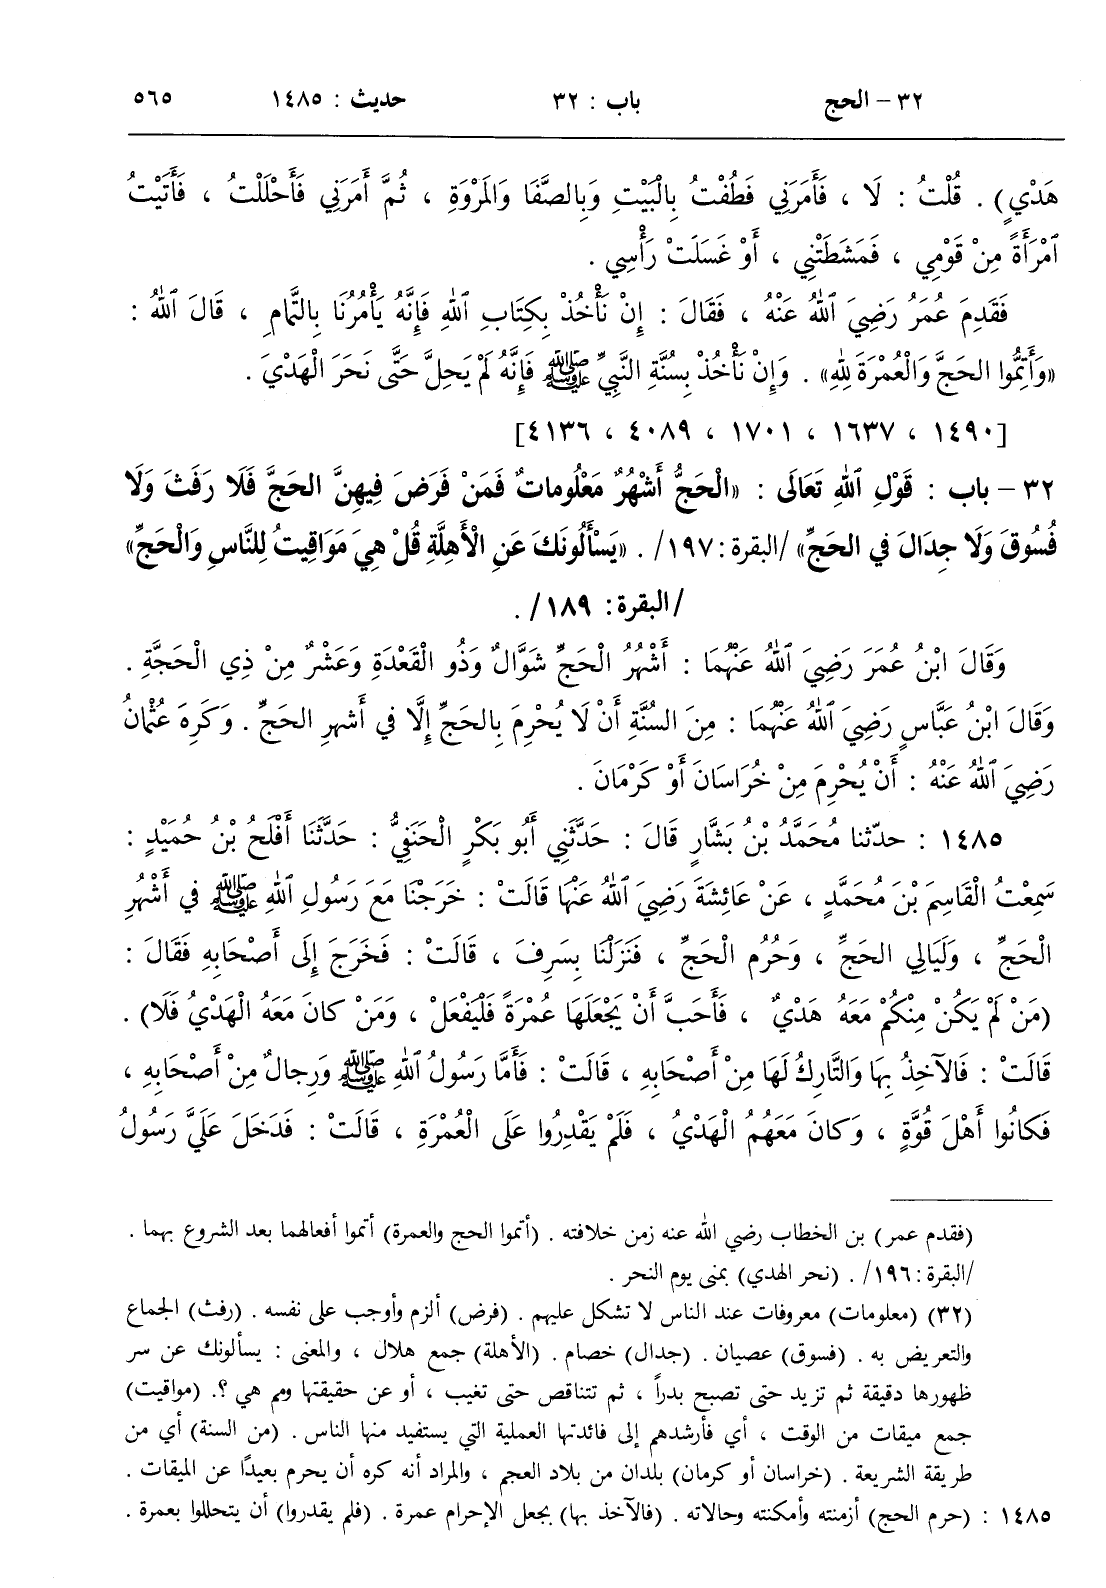 ٣٢ – الحج باب : ٣٢ حديث : ١٤٨٥ ٥٦٥
هَدْيٍ) . قُلْتُ : لَا ، فَأَمَرَنِي فَطُفْتُ بِالْبَيْتِ وَبِالصَّفَا وَالمَرْوَةِ ، ثُمَّ أَمَرَنِي فَأَحْلَلْتُ ، فَأَتَيْتُ
ٱمْرَأَةً مِنْ قَوْمِي ، فَمَشَطَتْنِي ، أَوْ غَسَلَتْ رَأْسِي .
فَقَدِمَ عُمَرُ رَضِيَ ٱللهُ عَنْهُ ، فَقَالَ : إِنْ نَأْخُذْ بِكِتَابِ ٱللهِ فَإِنَّهُ يَأْمُرُنَا بِالتَّمامِ ، قَالَ ٱللهُ :
«وَأَتِمُّوا الحَجَّ وَالْعُمْرَةَ لِلهِ» . وَإِنْ نَأْخُذْ بِسُنَّةِ النَّبِيِّ ﷺ فَإِنَّهُ لَمْ يَحِلَّ حَتَّى نَحَرَ الْهَدْيَ .
[١٤٩٠ ، ١٦٣٧ ، ١٧٠١ ، ٤٠٨٩ ، ٤١٣٦]
٣٢ – باب : قَوْلِ ٱللهِ تَعَالَى : «الْحَجُّ أَشْهُرٌ مَعْلُومَاتٌ فَمَنْ فَرَضَ فِيهِنَّ الحَجَّ فَلَا رَفَثَ وَلَا
فُسُوقَ وَلَا جِدَالَ في الحَجِّ» /البقرة: ١٩٧/ . «يَسْأَلُونَكَ عَنِ الْأَهِلَّةِ قُلْ هِيَ مَوَاقِيتُ لِلنَّاسِ وَالْحَجِّ»
/البقرة: ١٨٩/ .
وَقَالَ ابْنُ عُمَرَ رَضِيَ ٱللهُ عَنْهُمَا : أَشْهُرُ الْحَجِّ شَوَّالٌ وَذُو الْقَعْدَةِ وَعَشْرٌ مِنْ ذِي الْحَجَّةِ .
وَقَالَ ابْنُ عَبَّاسٍ رَضِيَ ٱللهُ عَنْهُمَا : مِنَ السُنَّةِ أَنْ لَا يُحْرِمَ بِالحَجِّ إِلَّا في أَشهرِ الحَجِّ . وَكَرِهَ عُثْمَانُ
رَضِيَ ٱللهُ عَنْهُ : أَنْ يُحْرِمَ مِنْ خُرَاسَانَ أَوْ كَرْمَانَ .
١٤٨٥ : حدّثنا مُحَمَّدُ بْنُ بَشَّارٍ قَالَ : حَدَّثَنِي أَبُو بَكْرٍ الْحَنَفِيُّ : حَدَّثَنَا أَفْلَحُ بْنُ حُمَيْدٍ :
سَمِعْتُ الْقَاسِمَ بْنَ مُحَمَّدٍ ، عَنْ عَائِشَةَ رَضِيَ ٱللهُ عَنْهَا قَالَتْ : خَرَجْنَا مَعَ رَسُولِ ٱللهِ ﷺ في أَشْهُرِ
الْحَجِّ ، وَلَيَالِي الحَجِّ ، وَحُرُمِ الْحَجِّ ، فَنَزَلْنَا بِسَرِفَ ، قَالَتْ : فَخَرَجَ إِلَى أَصْحَابِهِ فَقَالَ :
(مَنْ لَمْ يَكُنْ مِنْكُمْ مَعَهُ هَدْيٌ ، فَأَحَبَّ أَنْ يَجْعَلَهَا عُمْرَةً فَلْيَفْعَلْ ، وَمَنْ كانَ مَعَهُ الْهَدْيُ فَلَا) .
قَالَتْ : فَالآخِذُ بِهَا وَالتَّارِكُ لَهَا مِنْ أَصْحَابِهِ ، قَالَتْ : فَأَمَّا رَسُولُ ٱللهِ ﷺ وَرِجالٌ مِنْ أَصْحَابِهِ ،
فَكَانُوا أَهْلَ قُوَّةٍ ، وَكانَ مَعَهُمُ الْهَدْيُ ، فَلَمْ يَقْدِرُوا عَلَى الْعُمْرَةِ ، قَالَتْ : فَدَخَلَ عَلَيَّ رَسُولُ
(فقدم عمر) بن الخطاب رضي الله عنه زمن خلافته . (أتموا الحج والعمرة) أتموا أفعالهما بعد الشروع بهما .
/البقرة: ١٩٦/ . (نحر الهدي) بمنى يوم النحر .
(٣٢) (معلومات) معروفات عند الناس لا تشكل عليهم . (فرض) ألزم وأوجب على نفسه . (رفث) الجماع
والتعريض به . (فسوق) عصيان . (جدال) خصام . (الأهلة) جمع هلال ، والمعنى : يسألونك عن سر
ظهورها دقيقة ثم تزيد حتى تصبح بدراً ، ثم تتناقص حتى تغيب ، أو عن حقيقتها ومم هي ؟. (مواقيت)
جمع ميقات من الوقت ، أي فأرشدهم إلى فائدتها العملية التي يستفيد منها الناس . (من السنة) أي من
طريقة الشريعة . (خراسان أو كرمان) بلدان من بلاد العجم ، والمراد أنه كره أن يحرم بعيدًا عن الميقات .
١٤٨٥ : (حرم الحج) أزمنته وأمكنته وحالاته . (فالآخذ بها) بجعل الإحرام عمرة . (فلم يقدروا) أن يتحللوا بعمرة .